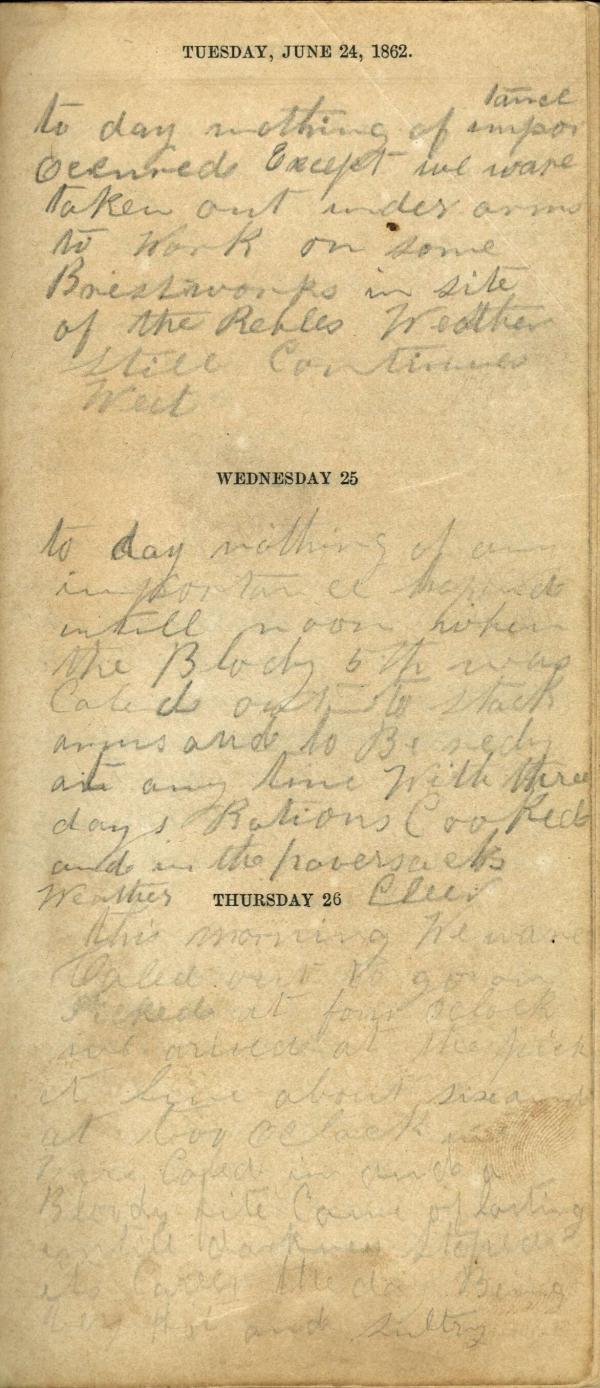 TUESDAY, JUNE 24, 1862.
tance
to day nothing of impor
Occureds Except we ware
taken out under arms
to Work on some
Brestworks in site
of the Rebles Weather
Still Continues
Weet
WEDNESDAY 25
to day nothing of any
importance hapineds
untill noon when
the Blody 5th was
Caleds out to stack
arms ands to Be redy
at any time With three
days Rations Cookeds
ands in the haversacks
Weather Cleer
THURSDAY 26
this morning We ware
Caled out to go on
Pickeds at four oclock
we arived at the pick
et line about six ands
at two oclock
Caled in ands a
Bloody fite Came of lasting
untill darkness stopeds
its the day Being
very Hot ands sultry